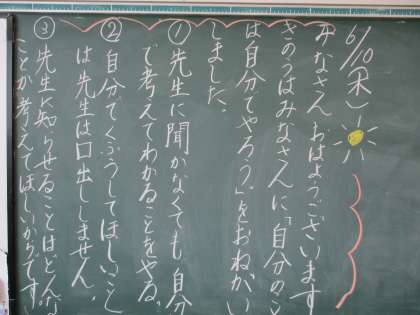 6/10(木)
みなさん おはようございます
きのうはみなさんに「自分のこと
は自分でやろう」をおねがい
しました。
①先生に聞かなくても自分
で考えてわかることをやる。
②自分でくふうしてほしいこと
は先生は口出ししません。
③先生に知らせることはどんな
ことか考えてほしいからです。